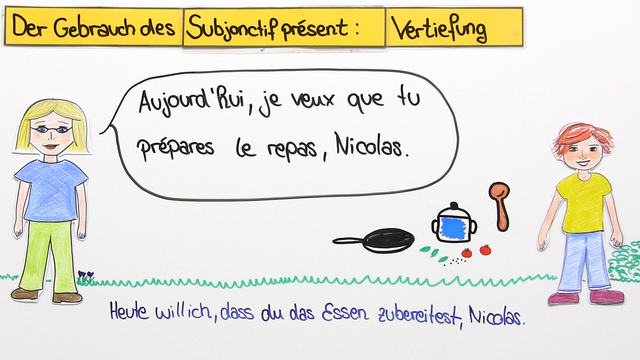 Der Gebrauch des Subjonctif présent: Vertiefung
Aujourd'hui, je veux que tu
prépares le repas, Nicolas.
Heute will ich, dass du das Essen zubereitest, Nicolas.